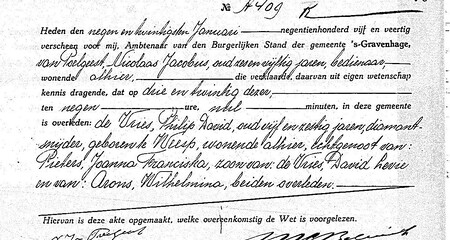 No A 409
Heden den negen en twintigsten Januari negentienhonderd vijf en veertig
verscheen voor mij, Ambtenaar van den Burgerlijken Stand der gemeente 's-Gravenhage,
van Poelgeest, Nicolaas Jacobus, oud zes en vijftig jaren, bedienaar,
wonende alhier, die verklaarde, daarvan uit eigen wetenschap
kennis dragende, dat op drie en twintig dezer,
ten negen ure, nul minuten, in deze gemeente
is overleden: de Vries, Philip David, oud vijf en zestig jaren, diamant-
snijder, geboren te Weesp, wonende alhier, echtgenoot van:
Pieters, Joanna Franciska, zoon van: de Vries, David Levie
en van: Arons, Wilhelmina, beiden overleden.
Hiervan is deze akte opgemaakt, welke overeenkomstig de Wet is voorgelezen.